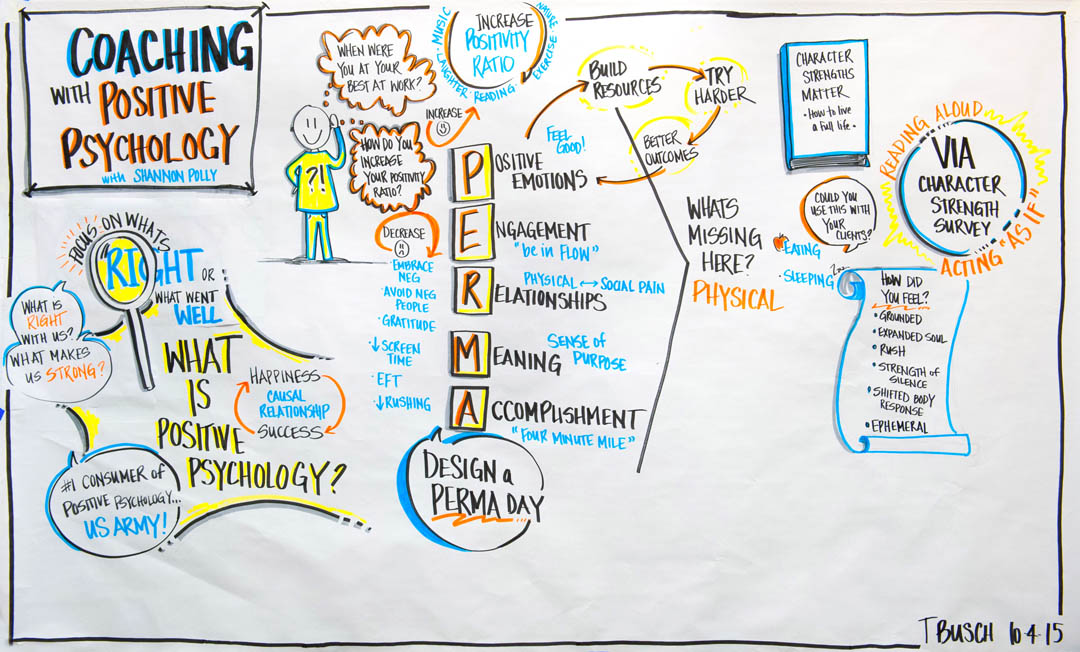 COACHING
WITH POSITIVE
PSYCHOLOGY
with SHANNON POLLY
FOCUS ON WHATS
"RIGHT OR
WHAT WENT
WELL
WHAT IS
RIGHT
WITH US?
WHAT MAKES
US STRONG?
WHAT
IS
POSITIVE
PSYCHOLOGY?
HAPPINESS
CAUSAL
RELATIONSHIP
SUCCESS
#1 CONSUMER OF
POSITIVE PSYCHOLOGY...
US ARMY!
WHEN WERE
YOU AT YOUR
BEST AT WORK?
HOW DO YOU
INCREASE
YOUR POSITIVITY
RATIO?
?!
INCREASE
POSITIVITY
RATIO
· MUSIC
· LAUGHTER · READING · EXERCISE · NATURE
INCREASE
DECREASE
· EMBRACE
NEG
· AVOID NEG
PEOPLE
· GRATITUDE
· ↓ SCREEN
TIME
· EFT
· ↓ RUSHING
POSITIVE
EMOTIONS
FEEL
GOOD!
ENGAGEMENT
"be in FLOW"
RELATIONSHIPS
PHYSICAL ↔ SOCIAL PAIN
MEANING
SENSE OF
PURPOSE
ACCOMPLISHMENT
"FOUR MINUTE MILE"
DESIGN a
PERMA DAY
BUILD
RESOURCES
TRY
HARDER
BETTER
OUTCOMES
WHATS
MISSING
HERE?
PHYSICAL
EATING
· SLEEPING Zzz...
CHARACTER
STRENGTHS
MATTER
- How to live
a full life -
COULD YOU
USE THIS WITH
YOUR
CLIENTS?
READING ALOUD
VIA
CHARACTER
STRENGTH
SURVEY
ACTING "AS IF"
HOW DID
YOU FEEL?
• GROUNDED
• EXPANDED SOUL
• RUSH
• STRENGTH OF
SILENCE
• SHIFTED BODY
RESPONSE
• EPHEMERAL
T BUSCH 10·4·15